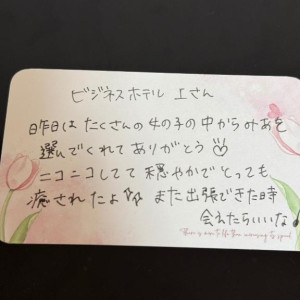 ビジネスホテル 上さん
昨日は たくさんの 女の子の中からみあを
選んでくれて ありがとう♡
ニコニコしてて 穏やかで とっても
癒されたよ また 出張できた時
会えたらいいな